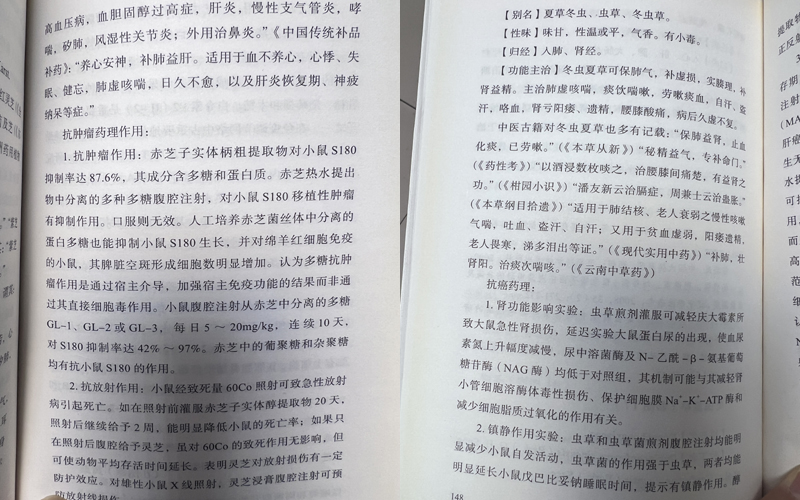 高血压病，血胆固醇过高症，肝炎，慢性支气管炎，哮
喘，矽肺，风湿性关节炎；外用治鼻炎。”《中国传统补品
补药》：“养心安神，补肺益肝。适用于血不养心，心悸、失
眠、健忘，肺虚咳喘，日久不愈，以及肝炎恢复期、神疲
纳呆等症。”
抗肿瘤药理作用：
1. 抗肿瘤作用：赤芝子实体柄粗提取物对小鼠 S180
抑制率达 87.6%，其成分含多糖和蛋白质。赤芝热水提出
物中分离的多种多糖腹腔注射，对小鼠 S180 移植性肿瘤
有抑制作用。口服则无效。人工培养赤芝菌丝体中分离的
蛋白多糖也能抑制小鼠 S180 生长，并对绵羊红细胞免疫
的小鼠，其脾脏空斑形成细胞数明显增加。认为多糖抗肿
瘤作用是通过宿主介导，加强宿主免疫功能的结果而非通
过其直接细胞毒作用。小鼠腹腔注射从赤芝中分离的多糖
GL-1、GL-2 或 GL-3，每日 5 ～ 20mg/kg，连续 10 天，
对 S180 抑制率达 42% ～ 97%。赤芝中的葡聚糖和杂聚糖
均有抗小鼠 S180 的作用。
2. 抗放射作用：小鼠经致死量 60Co 照射可致急性放射
病引起死亡。如在照射前灌服赤芝子实体醇提取物 20 天，
照射后继续给予 2 周，能明显降低小鼠的死亡率；如果只
在照射后腹腔给予灵芝，虽对 60Co 的致死作用无影响，但
可使动物平均存活时间延长。表明灵芝对放射损伤有一定
防护效应。对雄性小鼠 X 线照射，灵芝浸膏腹腔注射可预
防放射线损伤
【别名】夏草冬虫、虫草、冬虫草。
【性味】味甘，性温或平，气香。有小毒。
【归经】入肺、肾经。
【功能主治】冬虫夏草可保肺气，补虚损，实腠理，补
肾益精。主治肺虚咳喘，痰饮喘嗽，劳嗽痰血，自汗、盗
汗，咯血，肾亏阳痿、遗精，腰膝酸痛，病后久虚不复。
中医古籍对冬虫夏草也多有记载：“保肺益肾，止血
化痰，已劳嗽。”（《本草从新》）“秘精益气，专补命门。”
（《药性考》）“以酒浸数枚啖之，治腰膝间痛楚，有益肾之
功。”（《柑园小识》）“潘友新云治膈症，周兼士云治蛊胀。”
（《本草纲目拾遗》）“适用于肺结核、老人衰弱之慢性咳嗽
气喘，吐血、盗汗、自汗；又用于贫血虚弱，阳痿遗精，
老人畏寒，涕多泪出等证。”（《现代实用中药》）“补肺，壮
肾阳。治痰饮喘咳。”（《云南中草药》）
抗癌药理：
1. 肾功能影响实验：虫草煎剂灌服可减轻庆大霉素所
致大鼠急性肾损伤，延迟实验大鼠蛋白尿的出现，使血尿
素氮上升幅度减慢，尿中溶菌酶及 N-乙酰-β-氨基葡萄
糖苷酶（NAG 酶）均低于对照组，其机制可能与其减轻肾
小管细胞溶酶体毒性损伤、保护细胞膜 Na⁺-K⁺-ATP 酶和
减少细胞脂质过氧化的作用有关。
2. 镇静作用实验：虫草和虫草菌煎剂腹腔注射均能明
显减少小鼠自发活动，虫草菌的作用强于虫草，两者均能
明显延长小鼠戊巴比妥钠睡眠时间，提示有镇静作用。醇
148